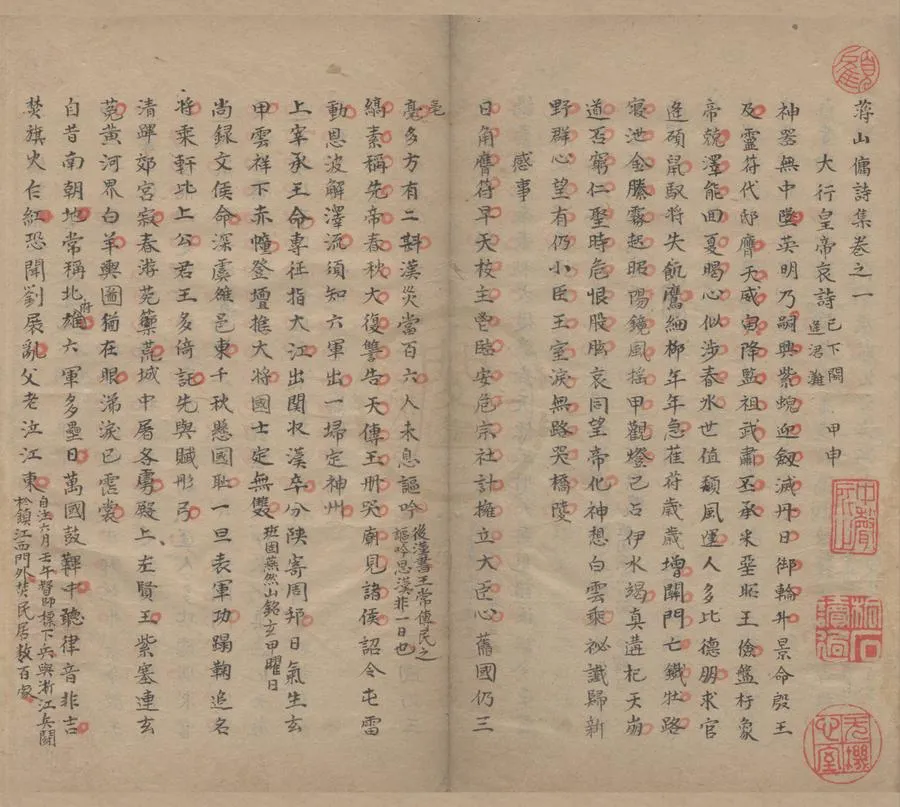 蔣山傭詩集卷之一
大行皇帝哀詩 已下閼逢涒灘 甲申
神器無中墜英明乃嗣興紫蜺迎劔滅丹日御輪升景命殷王
及靈符代邸膺天威寅降監祖武肅丕承采堊昭王儉盤杅象
帝兢澤能回夏暍心似涉春冰世值頹風運人多比德朋求官
逢碩鼠馭將失飢鷹細柳年年急萑苻歲歲增關門亡鐵牡路
寢泄金縢霧起昭陽鏡風搖甲觀燈已占伊水竭真遘杞天崩
道否窮仁聖時危恨股肱哀同望帝化神想白雲乘祕讖歸新
野群心望有仍小臣王室淚無路哭橋陵
感事
日角膺符早天枝主鬯臨安危宗社計擁立大臣心舊國仍三
亳多方有二斟漢災當百六人未息謳吟 後漢書王常傳民之謳吟思漢非一日也
縞素稱先帝春秋大復讐告天傳玉冊哭廟見諸侯詔令屯雷
動恩波解澤流須知六軍出一掃定神州
上宰承王命專征指大江出關收漢卒分陝寄周邦日氣生玄
甲雲祥下赤幢登壇推大將國士定無雙 班固燕然山銘玄甲曜日
尚録文侯命深虞雒邑東千秋懸國恥一旦表軍功蹋鞠追名
將乘軒比上公君王多倚託先與賦彤弓
清蹕郊宮寂春游苑籞荒城中屠各虜殿上左賢王紫塞連玄
菟黃河界白羊輿圖猶在眼涕淚已霑裳
自昔南朝地常稱北府雄六軍多壘日萬國鼓鼙中聽律音非吉
焚旗火乍紅恐聞劉展亂父老泣江東 自注六月壬午督師標下兵與浙江兵鬭於鎮江西門外焚民居數百家